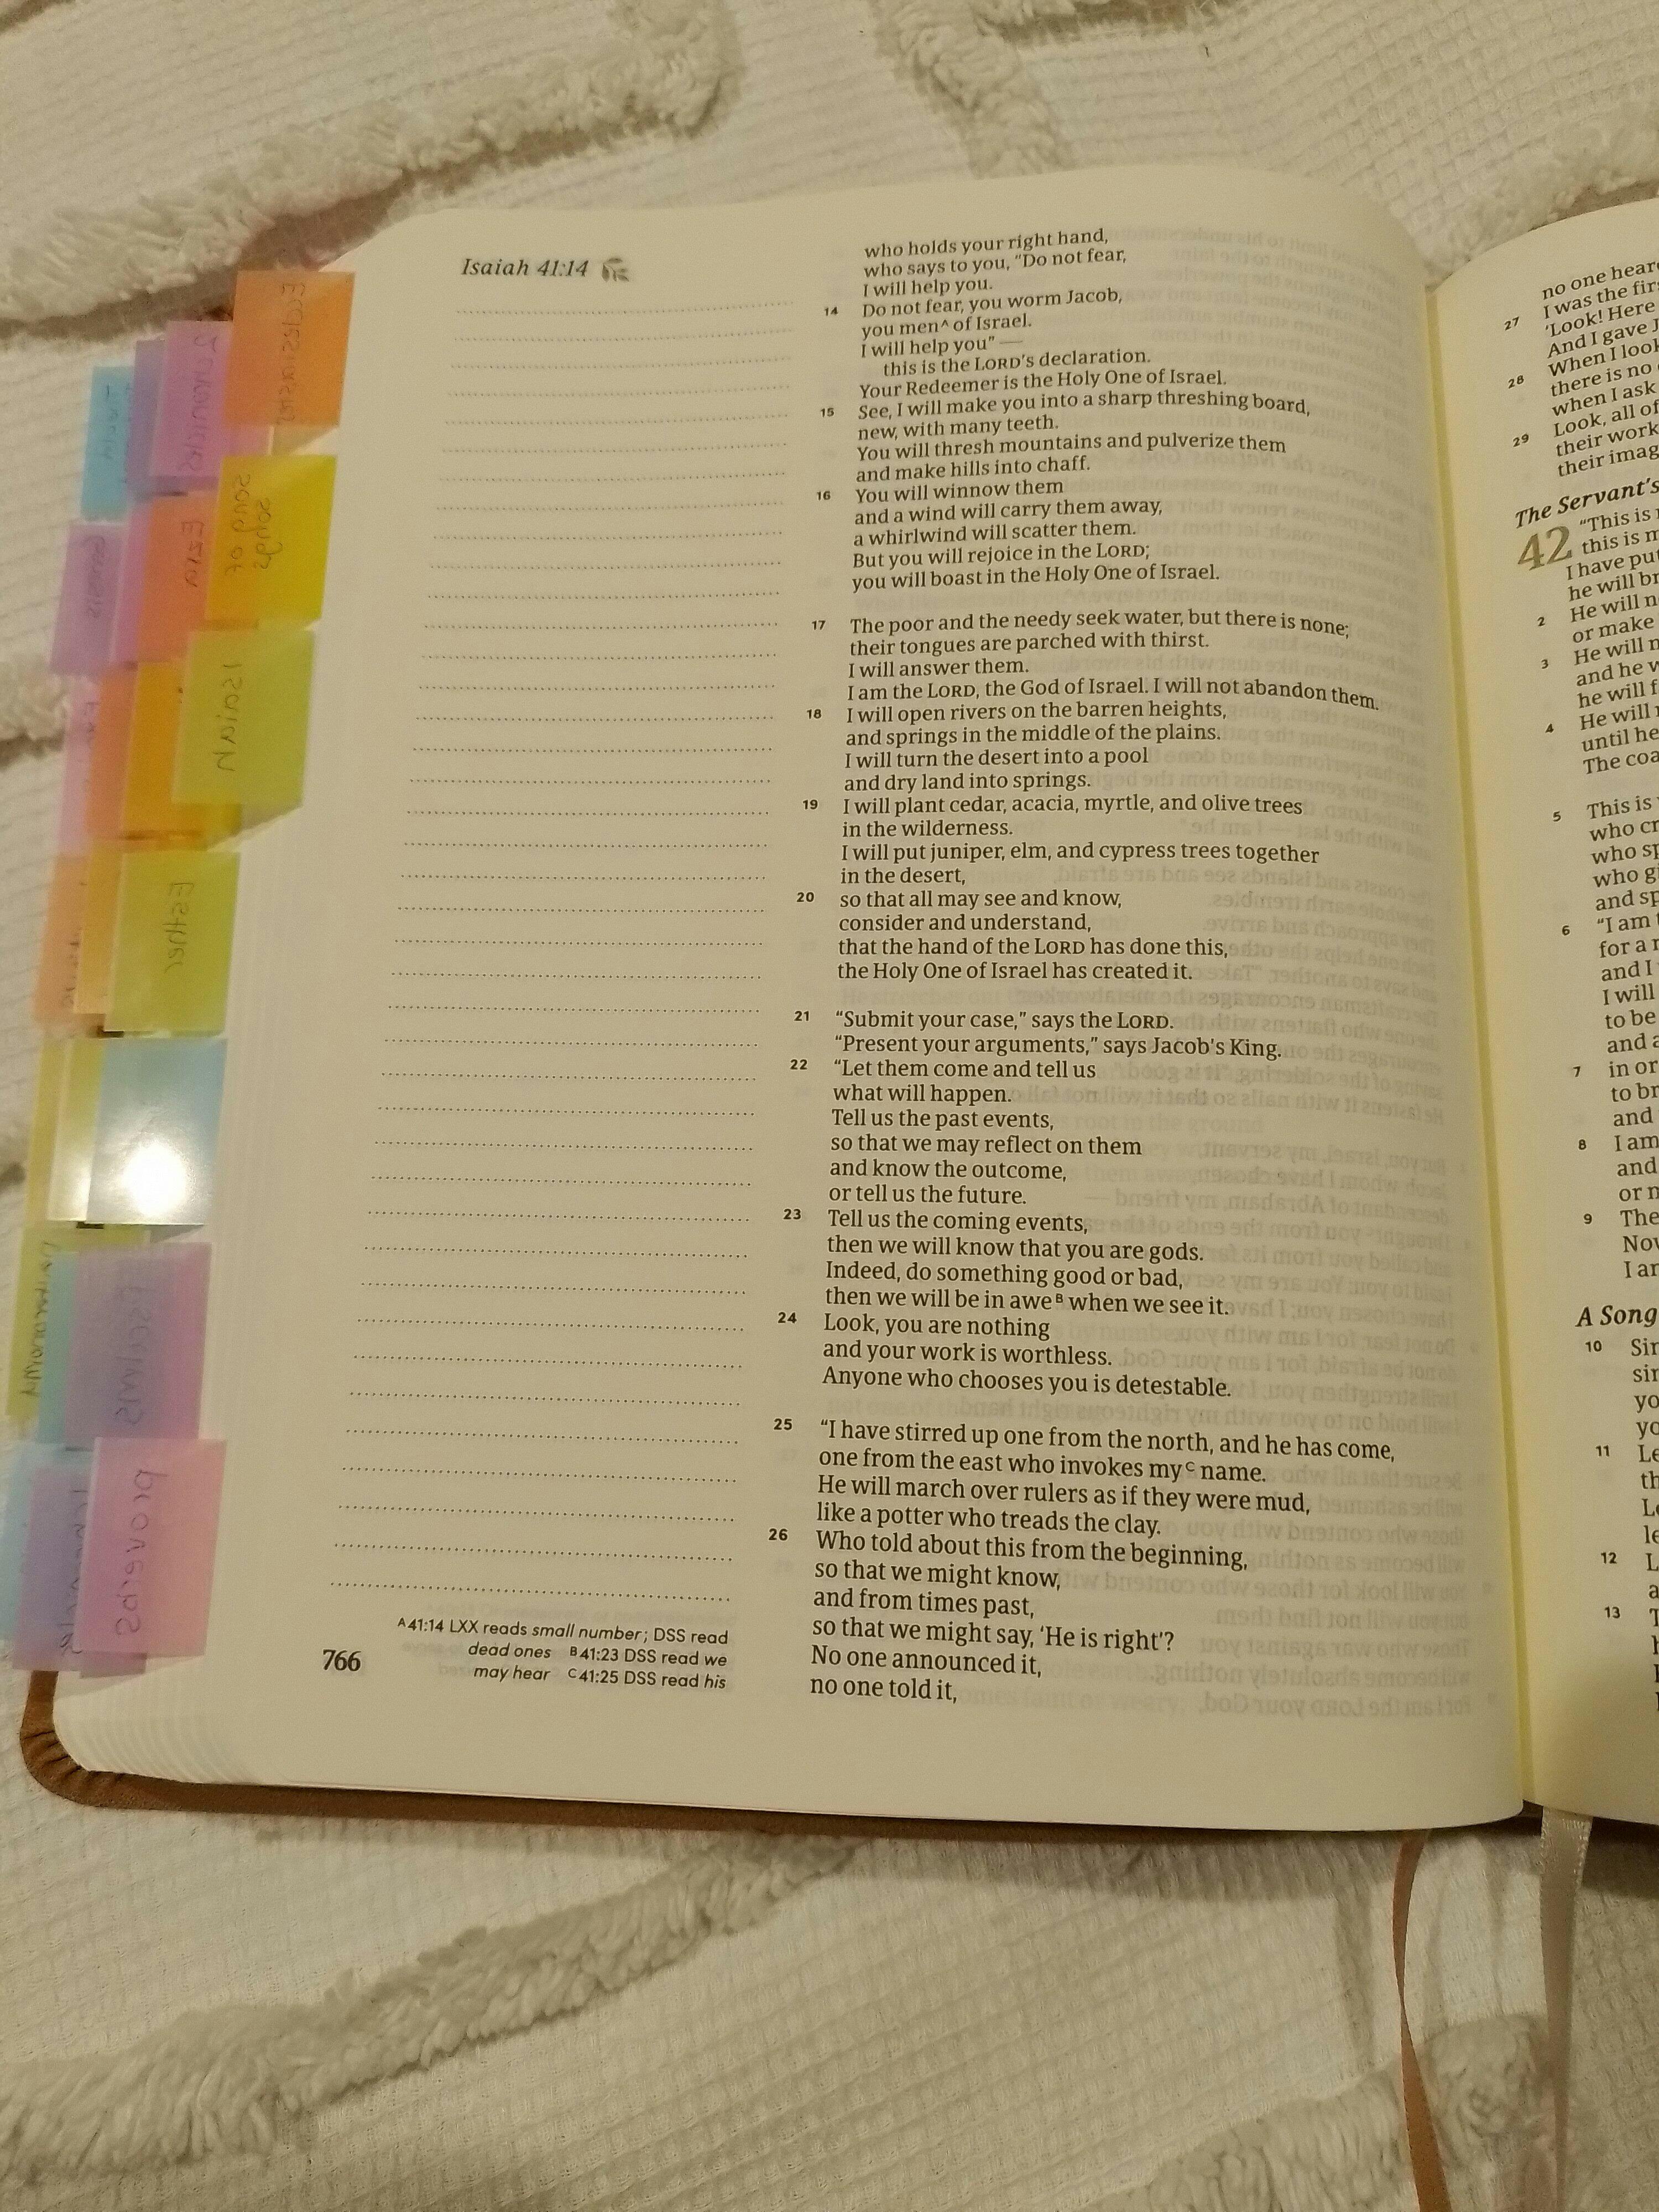 Isaiah 41:14
who holds your right hand,
who says to you, "Do not fear,
I will help you.
14 Do not fear, you worm Jacob,
you men A of Israel.
I will help you" —
this is the LORD's declaration.
Your Redeemer is the Holy One of Israel.
15 See, I will make you into a sharp threshing board,
new, with many teeth.
You will thresh mountains and pulverize them
and make hills into chaff.
16 You will winnow them
and a wind will carry them away,
a whirlwind will scatter them.
But you will rejoice in the LORD;
you will boast in the Holy One of Israel.
17 The poor and the needy seek water, but there is none;
their tongues are parched with thirst.
I will answer them.
I am the LORD, the God of Israel. I will not abandon them.
18 I will open rivers on the barren heights,
and springs in the middle of the plains.
I will turn the desert into a pool
and dry land into springs.
19 I will plant cedar, acacia, myrtle, and olive trees
in the wilderness.
I will put juniper, elm, and cypress trees together
in the desert,
20 so that all may see and know,
consider and understand,
that the hand of the LORD has done this,
the Holy One of Israel has created it.
21 "Submit your case," says the LORD.
"Present your arguments," says Jacob's King.
22 "Let them come and tell us
what will happen.
Tell us the past events,
so that we may reflect on them
and know the outcome,
or tell us the future.
23 Tell us the coming events,
then we will know that you are gods.
Indeed, do something good or bad,
then we will be in awe B when we see it.
24 Look, you are nothing
and your work is worthless.
Anyone who chooses you is detestable.
25 "I have stirred up one from the north, and he has come,
one from the east who invokes my C name.
He will march over rulers as if they were mud,
like a potter who treads the clay.
26 Who told about this from the beginning,
so that we might know,
and from times past,
so that we might say, 'He is right'?
No one announced it,
no one told it,
A 41:14 LXX reads small number; DSS read
dead ones B 41:23 DSS read we
may hear C 41:25 DSS read his
766
song of
songs
Isaiah
Ezra
Esther
proverbs
no one
27 I was the
'Look! Here
And I gave
28 When I
there is no
when I ask
29 Look, all of
their work
their
The Servant's
42 "This is
this is
I have put
he will
2 He will
or make
3 He will
and he
he will
4 He will
until he
The
5 This is
who
who
who
and
6 "I am
for a
and I
I will
to be
and
7 in
to
and
8 I am
and
or
9 The
I
A Song
10
11
12
13